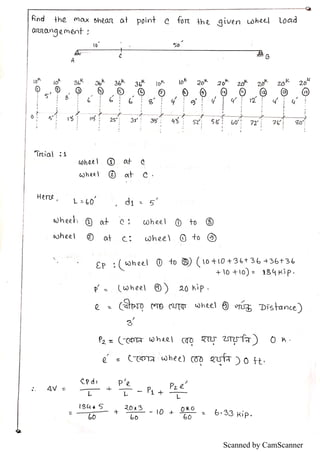 Find the max shear at point C for the given wheel load
arrangement :
10' 50'
A C B
10ᴷ 10ᴷ 36ᴷ 36ᴷ 36ᴷ 36ᴷ 10ᴷ 10ᴷ 20ᴷ 20ᴷ 20ᴷ 20ᴷ 20ᴷ 20ᴷ
① ② ③ ④ ⑤ ⑥ ⑦ ⑧ ⑨ ⑩ ⑪ ⑫ ⑬ ⑭
5' 8' 6' 6' 6' 8' 4' 9' 4' 4' 12' 4' 4'
0 5' 13' 19' 25' 31' 39' 43' 52' 56' 60' 72' 76' 80'
Trial : 1
wheel ① at C
wheel ② at C .
Here, L = 60' , d₁ = 5'
wheel ① at C : wheel ① to ⑧
wheel ② at C : wheel ① to ⑨
ΣP : (wheel ① to ⑧) (10 + 10 + 36 + 36 + 36 + 36
+ 10 + 10) = 184 Kip.
P' = (wheel ⑨) 20 kip.
wheel ⑨ Distance)
3'
P₂ = wheel 0 K.
e' = wheel ) 0 ft.
∴ ΔV = ΣPd₁/L + P'e/L - P₁ + P₂e'/L
= 184×5/60 + 20×3/60 - 10 + 0×0/60 = 6.33 Kip.
Scanned by CamScanner